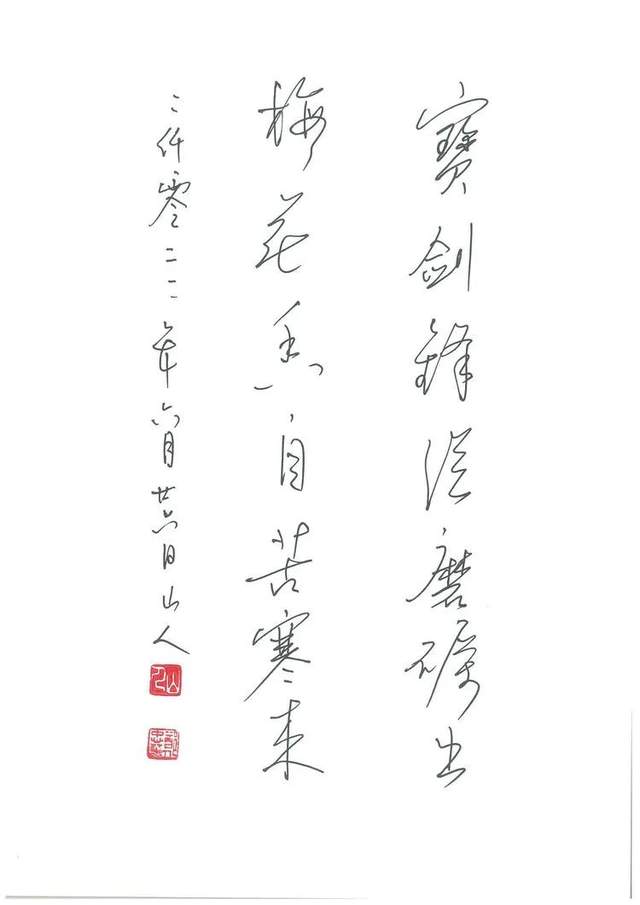 寶劍鋒從磨礪出
梅花香自苦寒來
二仟零二二年六月廿六日山人
山人